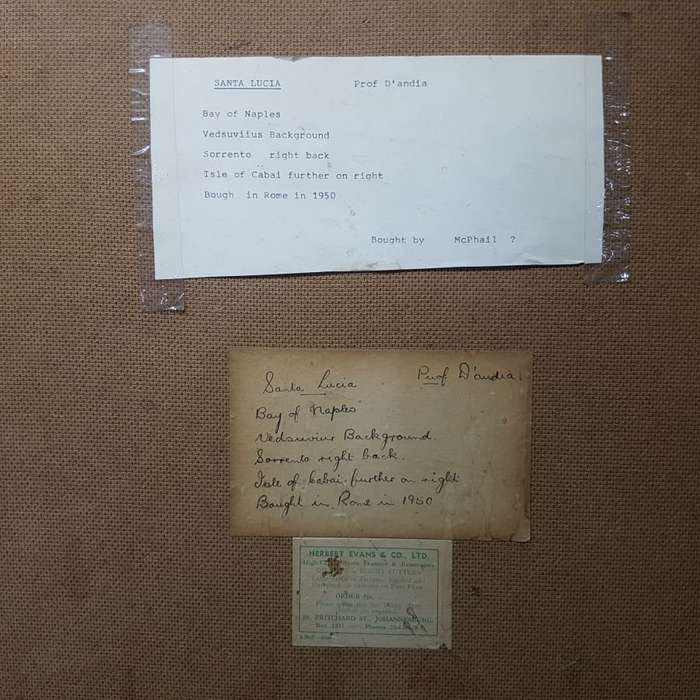 SANTA LUCIA Prof D'andia
Bay of Naples
Vedsuviius Background
Sorrento right back
Isle of Cabai further on right
Bough in Rome in 1950
Bought by McPhail ?
Santa Lucia Prof D'andia
Bay of Naples
Vedsuvius Background.
Sorrento right back.
Isle of Cabai further on right
Bought in Rome in 1950
HERBERT EVANS & CO., LTD.
ORDER No.
PRITCHARD ST., JOHANNESBURG.
Box